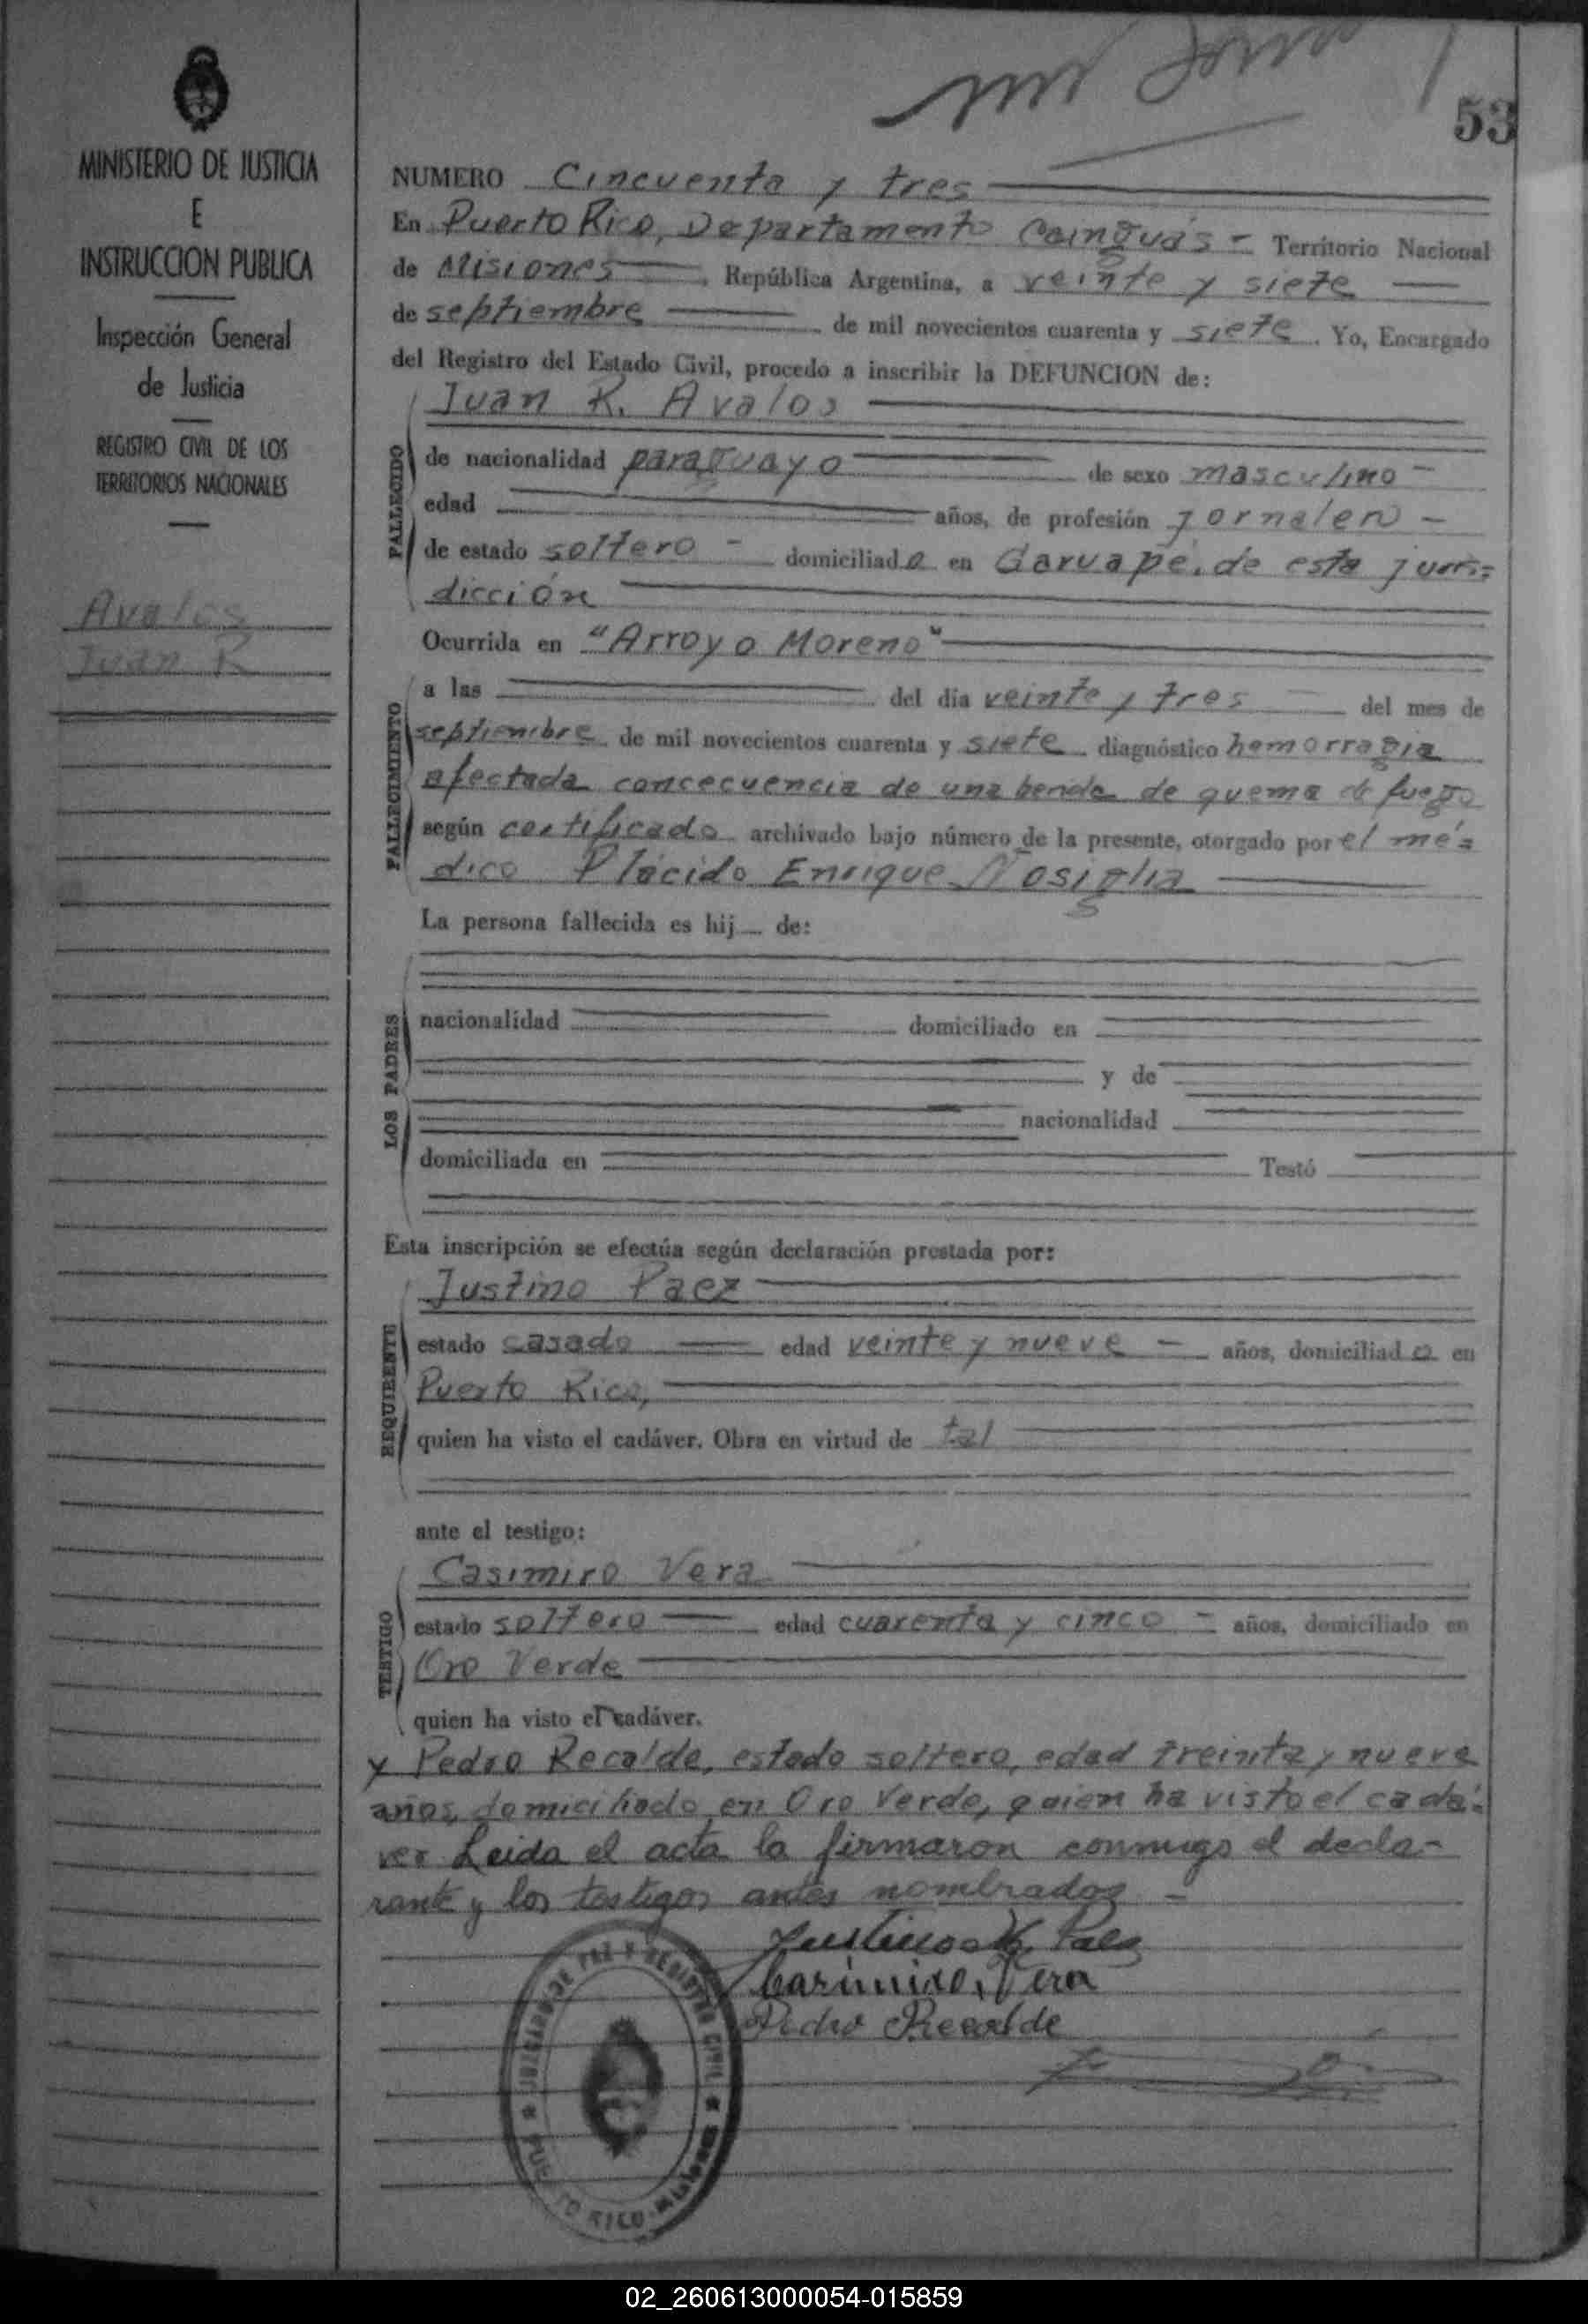 53
MINISTERIO DE JUSTICIA
E
INSTRUCCION PUBLICA
Inspección General
de Justicia
REGISTRO CIVIL DE LOS
TERRITORIOS NACIONALES
Avalos
Juan R
NUMERO Cincuenta y tres
En Puerto Rico, Departamento Cainguás - Territorio Nacional
de Misiones, República Argentina, a veinte y siete
de septiembre de mil novecientos cuarenta y siete. Yo, Encargado
del Registro del Estado Civil, procedo a inscribir la DEFUNCION de:
Juan R. Avalos
FALLECIDO
de nacionalidad paraguayo de sexo masculino -
edad años, de profesión jornalero -
de estado soltero - domiciliado en Garuapé, de esta juris=
dicción
Ocurrida en "Arroyo Moreno"
FALLECIMIENTO
a las del día veinte y tres del mes de
septiembre de mil novecientos cuarenta y siete diagnóstico hemorragia
afectada concecuencia de una de quema de fuego
según certificado archivado bajo número de la presente, otorgado por el mé=
dico Plácido Enrique Nosiglia
La persona fallecida es hij de:
LOS PADRES
nacionalidad domiciliado en
y de
nacionalidad
domiciliada en Testó
Esta inscripción se efectúa según declaración prestada por:
Justino Paez
REQUIRENTE
estado casado edad veinte y nueve - años, domiciliado en
Puerto Rico,
quien ha visto el cadáver. Obra en virtud de tal
ante el testigo:
Casimiro Vera
TESTIGO
estado soltero edad cuarenta y cinco - años, domiciliado en
Oro Verde
quien ha visto el cadáver.
y Pedro Recalde, estado soltero, edad treinta y nueve
años, domiciliado en Oro Verde, quien ha visto el cadá=
ver Leida el acta la firmaron conmigo el decla-
rante y los testigos antes nombrados -
Justino Paez
Casimiro Vera
Pedro Recalde
JUZGADO DE PAZ Y REGISTRO CIVIL
PUERTO RICO - Misiones
02_260613000054-015859